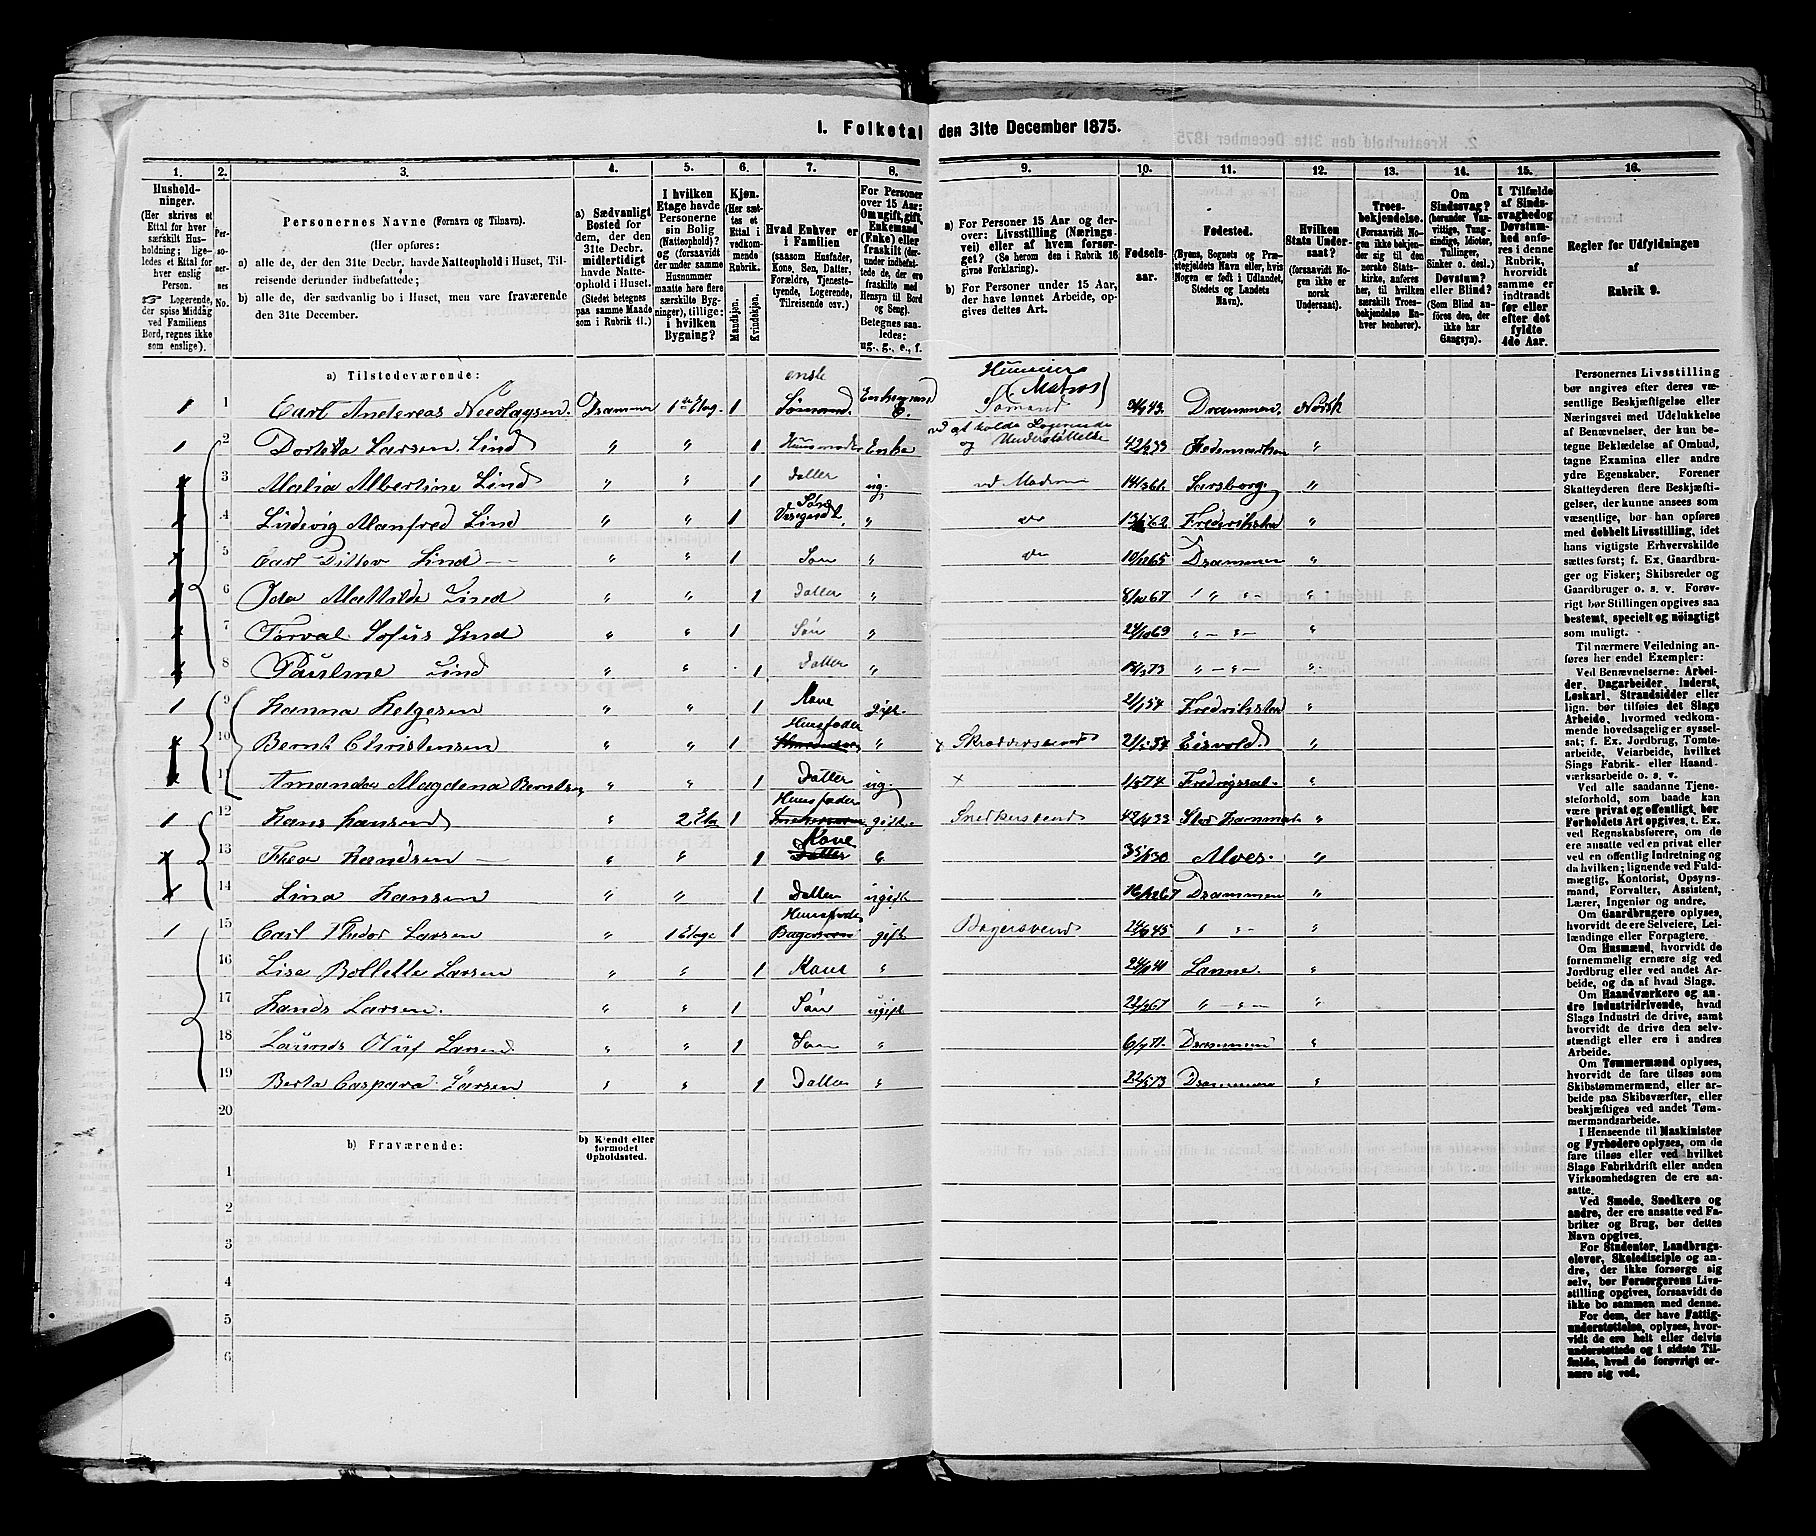 1. Folketal den 31te December 1875.
1. 2. 3. 4. 5. 6. 7. 8. 9. 10. 11. 12. 13. 14. 15. 16.
Hushold-
ninger.
(Her skrives et
Ettal for hver
særskilt Hus-
holdning; lige-
ledes et Ettal for
hver enslig
Person.
☞ Logerende,
der spise Middag
ved Familiens
Bord, regnes ikke
som enslige).
Per-
so-
ner-
nes
No.
Personernes Navne (Fornavn og Tilnavn).
(Her opføres:
a) alle de, der den 31te Decbr. havde Natteophold i Huset, Til-
reisende derunder indbefattede;
b) alle de, der sædvanlig bo i Huset, men vare fraværende
den 31te December.
a) Sædvanligt
Bosted for
dem, der den
31te Decbr.
midlertidigt
havde Natte-
ophold i Huset.
(Stedet betegnes
paa samme Maade
som i Rubrik 11.)
I hvilken
Etage havde
Personerne
sin Bolig
(Natteophold)?
og (forsaavidt
der under samme
Husnummer
maatte høre flere
særskilte Byg-
ninger), tillige:
i hvilken
Bygning?
Kjøn.
(Her sæt-
tes et
Ettal i
vedkom-
mende
Rubrik.
Mandkjøn.
Kvindekjøn.
Hvad Enhver er
i Familien
(saasom Husfader,
Kone, Søn, Datter,
Forældre, Tjeneste-
tyende, Logerende,
Tilreisende osv.)
For Personer
over 15 Aar:
Om ugift, gift,
Enkemand
(Enke) eller
fraskilt (der-
under indbefat-
tede de, der ere
fraskilte med
Hensyn til Bord
og Seng).
Betegnes saa-
ledes:
ug., g., e., f.
a) For Personer 15 Aar og der-
over: Livsstilling (Nærings-
vei) eller af hvem forsør-
get? (Se herom den i Rubrik 16
givne Forklaring).
b) For Personer under 15 Aar,
der have lønnet Arbeide, op-
gives dettes Art.
Fødsels-
aar.
Fødested.
(Byens, Sognets og Præ-
stegjeldets Navn eller, hvis
Nogen er født i Udlandet,
Stedets og Landets
Navn).
Hvilken
Stats Under-
saat?
(forsaavidt No-
gen ikke er
norsk
Undersaat).
Troes-
bekjendelse.
(Forsaavidt No-
gen ikke bekjen-
der sig til den
norske Stats-
kirke, anføres
her, til hvilken
særskilt Troes-
bekjendelse En-
hver henhører).
Om
Sindssvag?
(herunder Van-
vittige, Tung-
sindige, Idioter,
Tullinger,
Sinker o. desl.)
Døvstum?
eller Blind?
(Som Blind an-
føres den, der
ikke har
Gangsyn).
I Tilfælde
af Sinds-
svaghed og
Døvstum-
hed anfø-
res i denne
Rubrik,
hvorvidt
samme er
indtraadt
før eller
efter det
fyldte
4de Aar.
Regler for Udfyldningen
af
Rubrik 9.
a) Tilstedeværende:
1 1 Carl Andereas Nicolaysen. Drammen 1ste Etag. 1 ensl. Sømand. Enkemand e. Huuseier Sømand (Matros) 43. Drammen. Norsk
1 2 Dorteta Larsen. Lind " " 1 Huusmoder Enke ved at holde Logerende og Understøttelse 33 Hedemarken "
3 Malia Albertine Lind " " 1 Datter ug. ved Moderen 61. Sarsborg "
4 Ludevig Manfred Lind " " 1 Søn " do 62 Frederikstad "
5 Carl Ditlev Lind " " 1 Søn " do 65 Drammen "
6 Oda Mathilde Lind " " 1 Datter " 8/10 67 " " "
7 Torval. Sofus Lind " " 1 Søn " 24/10 69 " "
8 Pauline Lind " " 1 Datter " 73 " " "
1 9 Hanna Helgesen " " 1 Kone gift. 54 Fredrikstad "
10 Bernt Christensen " " 1 Huusfader " Skreddersvend Eisvold "
11 Amanda Magdena Berntsen " " 1 Datter ug. 74 Fredrigssal "
1 12 Hans Hansen " 2 Eta 1 Huusfader gift Snedkersvend 33 Stor Hammer "
13 Thea Handsen " " 1 Kone " 30 Alver. "
14 Lina Hansen " " 1 Datter ugift 67 Drammen "
1 15 Carl Thedor Larsen " 1 Etage 1 Huusfader gift Bagersvend 45 " " "
16 Lise Bollette Larsen " " 1 Kone " Sanne. "
17 Hands Larsen. " " 1 Søn ugift 67 " " "
18 Olüf Larsen " " 1 Søn " 71. Drammen "
19 Berta Caspara Larsen " " 1 Datter " 22/5 73 Drammen "
20
b) Fraværende:
b) Kjendt eller
formodet
Opholdssted.
1
2
3
4
5
6
Personernes Livsstilling
bør angives efter deres væ-
sentlige Beskjæftigelse eller
Næringsvei med Udelukkelse
af Benævnelser, der kun be-
tegne Beklædelse af Ombud,
tagne Examina eller andre
ydre Egenskaber. Forener
Skatteyderen flere Beskjæfti-
gelser, der kunne ansees som
væsentlige, bør han opføres
med dobbelt Livsstilling, idet
hans vigtigste Erhvervskilde
sættes først; f. Ex. Gaardbru-
ger og Fisker; Skibsreder og
Gaardbruger o. s. v. Forøv-
rigt bør Stillingen opgives saa
bestemt, specielt og nøiagtigt
som muligt.
Til nærmere Veiledning an-
føres her endel Exempler:
Ved Benævnelserne: Arbei-
der, Dagarbeider, Inderst,
Løskarl, Strandsidder eller
lign. bør tilføies det Slags
Arbeide, hvormed vedkom-
mende hovedsagelig er syssel-
sat; f. Ex. Jordbrug, Tomte-
arbeide, Veiarbeide, hvilket
Slags Fabrik- eller Haand-
værksarbeide o. s. v.
Ved alle saadanne Tjene-
steforhold, som baade kan
være privat og offentligt, bør
Forholdets Art opgives, t. Ex.
ved Regnskabsførere, om de
ere ansatte ved en privat eller
ved en offentlig Indretning og
da hvilken; lignende ved Fuld-
mægtig, Kontorist, Opsyns-
mand, Forvalter, Assistent,
Lærer, Ingeniør og andre.
Om Gaardbrugere oplyses,
hvorvidt de ere Selveiere, Lei-
lændinge eller Forpagtere.
Om Husmænd, hvorvidt de
fornemmelig ernære sig ved
Jordbrug eller ved andet Ar-
beide, og da af hvad Slags.
Om Haandværkere og an-
dre Industridrivende, hvad
Slags Industri de drive, samt
hvorvidt de drive den selv-
stændigt eller ere i andres
Arbeide.
Om Tømmermænd oplyses,
hvorvidt de fare tilsøs som
Skibstømmermænd, eller ar-
beide paa Skibsværfter, eller
beskjæftiges ved andet Tøm-
mermandsarbeide.
I Henseende til Maskinister
og Fyrbødere oplyses, om de
fare tilsøs eller ved hvilket
Slags Fabrikdrift eller anden
Virksomhedsgren de ere an-
satte.
Ved Smede, Snedkere og
andre, der ere ansatte ved Fa-
briker og Brug, bør dettes
Navn opgives.
For Studenter, Landbrugs-
elever, Skoledisciple og an-
dre, der ikke forsørge sig
selv, bør Forsørgerens Livs-
stilling opgives, forsaavidt de
ikke bo sammen med denne.
For dem, der have Fattig-
understøttelse, oplyses, hvor-
vidt de ere helt eller delvis
understøttede og i sidste Til-
fælde, hvad de forøvrigt er-
nære sig ved.